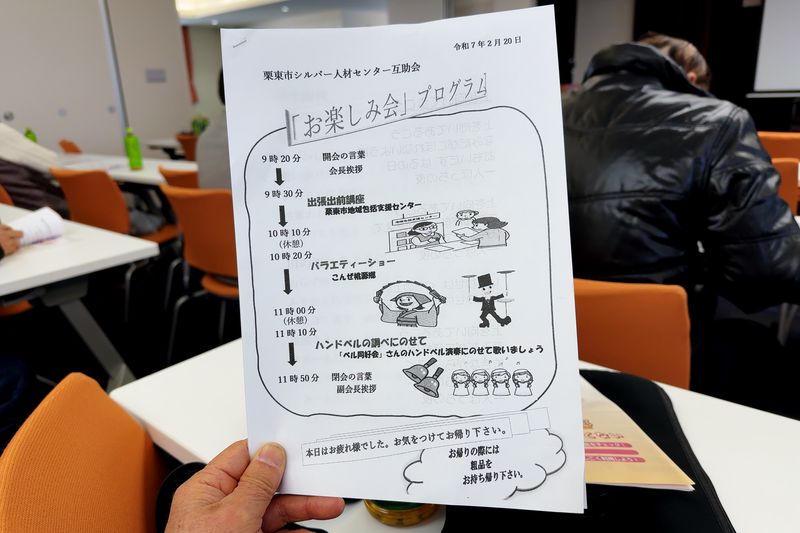 令和7年2月20日
栗東市シルバー人材センター互助会
「お楽しみ会」プログラム
9時20分 開会の言葉
会長挨拶
9時30分
出張出前講座
栗東市地域包括支援センター
10時10分
(休憩)
10時20分
バラエティーショー
こんぜ桃源郷
11時00分
(休憩)
11時10分
ハンドベルの調べにのせて
「ベル同好会」さんのハンドベル演奏にのせて歌いましょう
11時50分 閉会の言葉
副会長挨拶
本日はお疲れ様でした。お気をつけてお帰り下さい。
お帰りの際には
粗品を
お持ち帰り下さい。